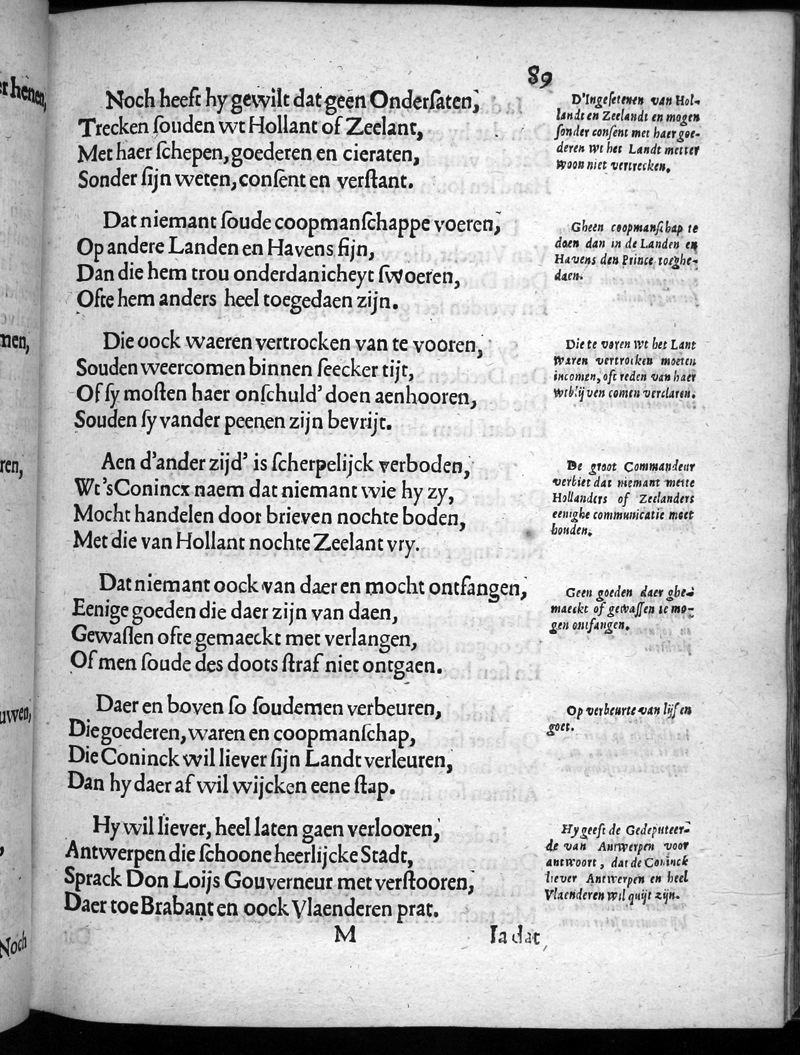 89
Noch heeft hy gewilt dat geen Onderſaten,
Trecken ſouden wt Hollant of Zeelant,
Met haer ſchepen, goederen en cieraten,
Sonder ſijn weten, conſent en verſtant.
D'Ingeſetenen van Hol-
landt en Zeelandt en mogen
ſonder conſent met haer goe-
deren wt het Landt metter
woon niet vertrecken.
Dat niemant ſoude coopmanſchappe voeren,
Op andere Landen en Havens ſijn,
Dan die hem trou onderdanicheyt ſwoeren,
Ofte hem anders heel toegedaen zijn.
Gheen coopmanſchap te
doen dan in de Landen en
Havens den Prince toeghe-
daen.
Die oock waeren vertrocken van te vooren,
Souden weercomen binnen ſeecker tijt,
Of ſy moſten haer onſchuld' doen aenhooren,
Souden ſy vander peenen zijn bevrijt.
Die te voren wt het Lant
waren vertrocken moeten
incomen, oft reden van haer
wtblijven comen verclaren.
Aen d'ander zijd' is ſcherpelijck verboden,
Wt 'sConincx naem dat niemant wie hy zy,
Mocht handelen door brieven nochte boden,
Met die van Hollant nochte Zeelant vry.
De groot Commandeur
verbiet dat niemant mette
Hollanders of Zeelanders
eenighe communicatie moet
houden.
Dat niemant oock van daer en mocht ontfangen,
Eenige goeden die daer zijn van daen,
Gewaſſen ofte gemaeckt met verlangen,
Of men ſoude des doots ſtraf niet ontgaen.
Geen goeden daer ghe-
maeckt of gewaſſen te mo-
gen ontfangen.
Daer en boven ſo ſoudemen verbeuren,
Die goederen, waren en coopmanſchap,
Die Coninck wil liever ſijn Landt verleuren,
Dan hy daer af wil wijcken eene ſtap.
Op verbeurte van lijf en
goet.
Hy wil liever, heel laten gaen verlooren,
Antwerpen die ſchoone heerlijcke Stadt,
Sprack Don Loijs Gouverneur met verſtooren,
Daer toe Brabant en oock Vlaenderen prat.
Hy geeft de Gedeputeer-
de van Antwerpen voor
antwoort, dat de Coninck
liever Antwerpen en heel
Vlaenderen wil quijt zijn.
M
Ia dat